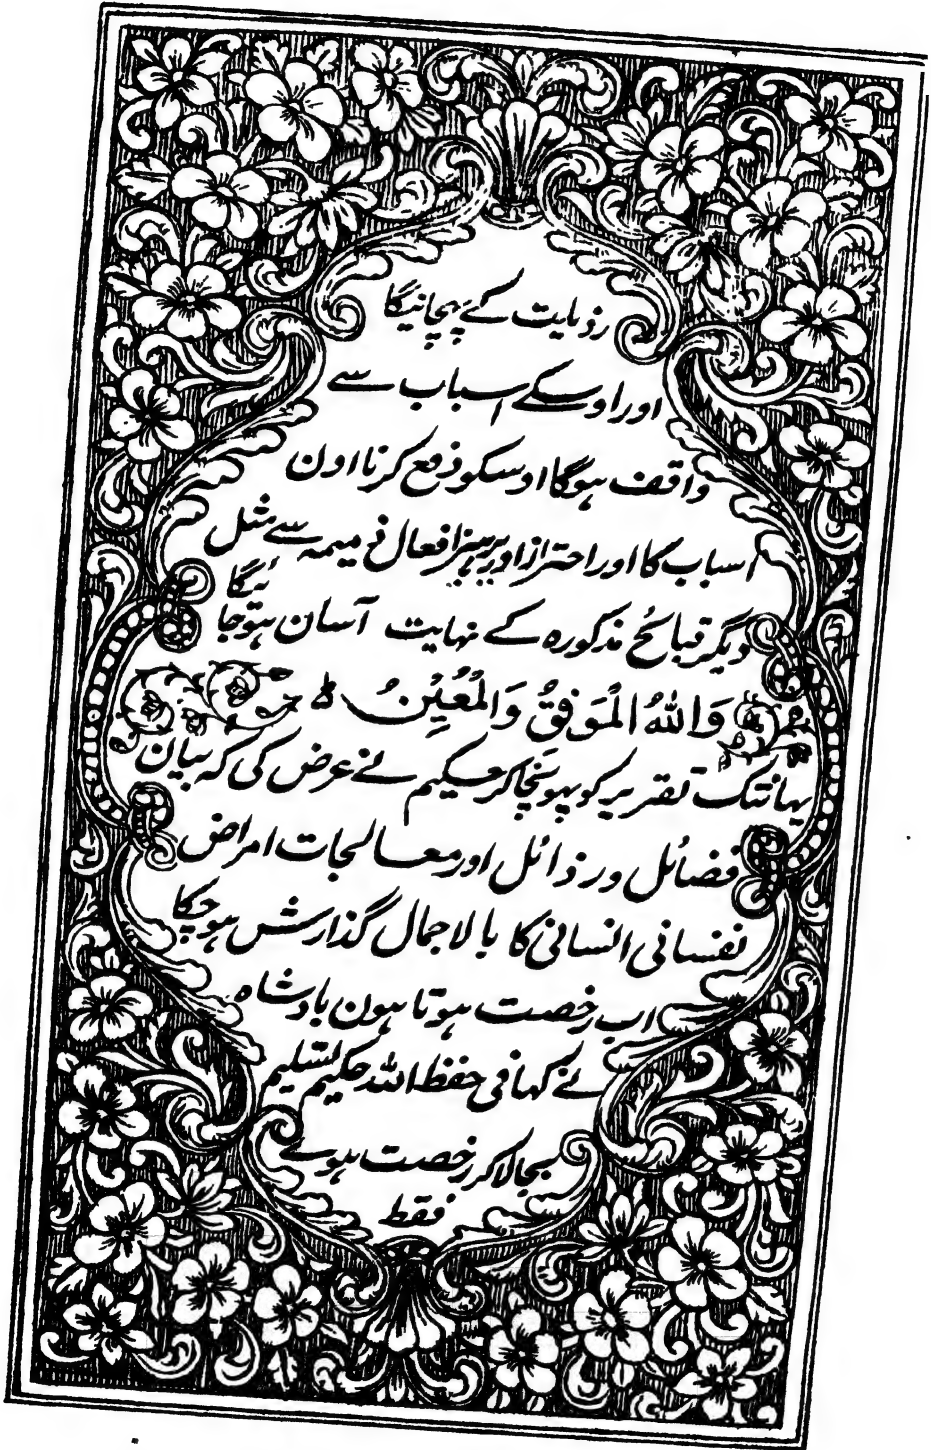 رذیلت کے پہچانیگا
اور اوسکے اسباب سے
واقف ہوگا اوسکو دفع کرنا اون
اسباب کا اور احتراز اور پرہیز افعال ذمیمہ سے مثل
دیگر قبائح مذکورہ کے نہایت آسان ہوجائیگا
وَاللّٰهُ الْمُوَفِّقُ وَالْمُعِیْنُ ط
یہانتک تقریر کو پہونچاکر حکیم نے عرض کی کہ بیان
فضائل و رذائل اور معالجات امراض
نفسانی انسانی کا بالاجمال گذارش ہوچکا
اب رخصت ہوتا ہون بادشاہ
نے کہا فی حفظ اللہ حکیم تسلیم
بجالاکر رخصت ہوئے
فقط